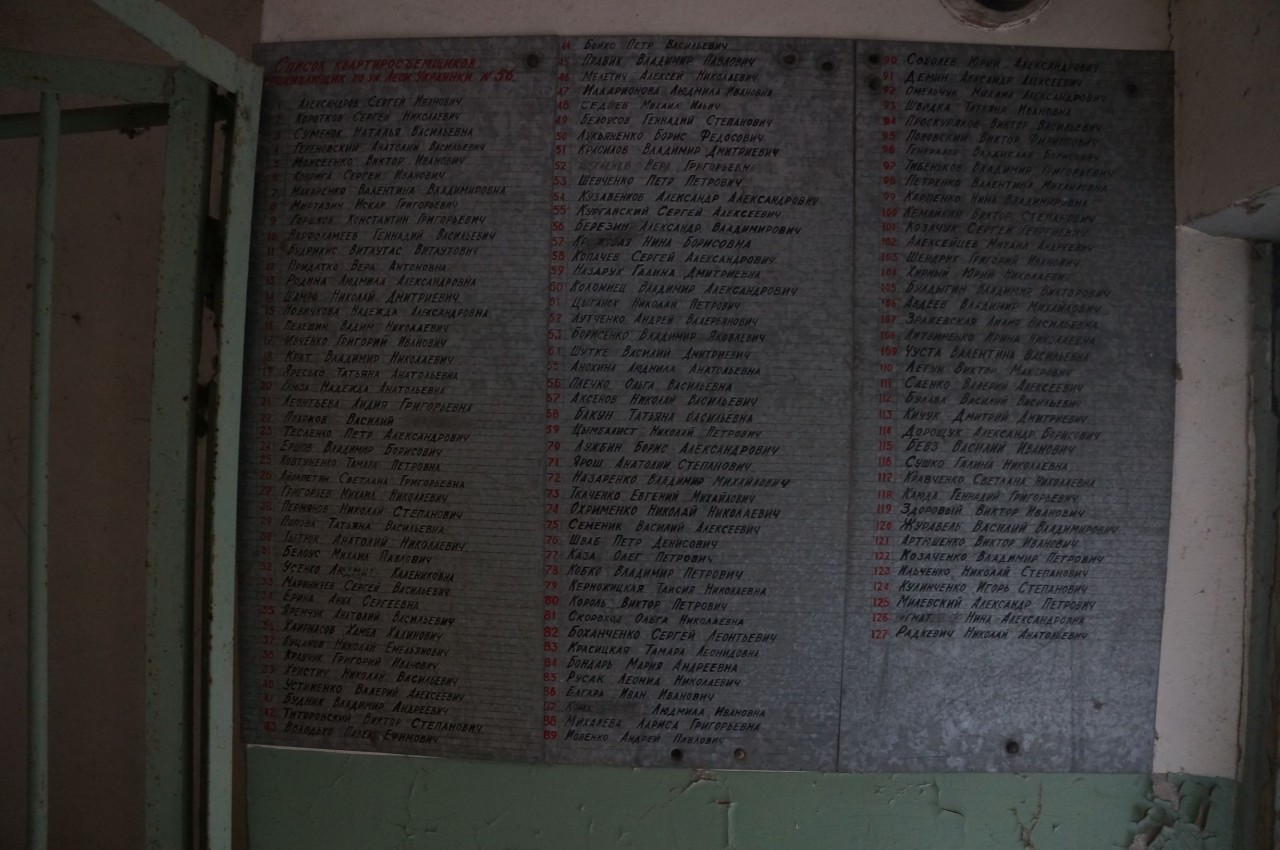 Список квартиросъемщиков
проживающих по ул Леси Украинки №56.
1 Александров Сергей Иванович
2 Коротков Сергей Николаевич
3 Суменок Наталья Васильевна
4 Тереновский Анатолий Васильевич
5 Моисеенко Виктор Иванович
6 Сергей Иванович
7 Макареня Валентина Владимировна
8 Миртазин Искар Григорьевич
9 Горшков Константин Григорьевич
10 Варфоламеев Геннадий Васильевич
11 Будрикис Витаутас Витаутович
12 Придатко Вера Антоновна
13 Родина Людмила Александровна
14 Шамро Николай Дмитриевич
15 Надежда Александровна
16 Пелешин Вадим Николаевич
17 Ивченко Григорий Иванович
18 Крат Владимир Николаевич
19 Яресько Татьяна Анатольевна
20 Надежда Анатольевна
21 Леонтьева Лидия Григорьевна
22 Василий
23 Тесленко Петр Александрович
24 Ершов Владимир Борисович
25 Ковтуненко Тамара Петровна
26 Айрапетян Светлана Григорьевна
27 Григорьев Михаил Николаевич
28 Пермяков Николай Степанович
29 Попова Татьяна Васильевна
30 Тытюк Анатолий Николаевич
31 Белоус Михаил Павлович
32 Усенко Калениковна
33 Мартынчев Сергей Васильевич
34 Ерина Анна Сергеевна
35 Яремчук Анатолий Васильевич
36 Хаирнасов Хамба Халинович
37 Куцанов Николай Емельянович
38 Кравчук Григорий Иванович
39 Христич Николай Васильевич
40 Устименко Валерий Алексеевич
41 Будник Владимир Андреевич
42 Титаровский Виктор Степанович
43 Володько Павел Ефимович
44 Бойко Петр Васильевич
45 Правик Владимир Павлович
46 Мелетич Алексей Николаевич
47 Илларионова Людмила Ивановна
48 Седаев Михаил Ильич
49 Белоусов Геннадий Степанович
50 Лукьяненко Борис Федосович
51 Красилов Владимир Дмитриевич
52 Вера Григорьевна
53 Шевченко Петр Петрович
54 Кузавенков Александр Александрович
55 Курганский Сергей Алексеевич
56 Березин Александр Владимирович
57 Нина Борисовна
58 Копачев Сергей Александрович
59 Назарук Галина Дмитриевна
60 Коломиец Владимир Александрович
61 Цыганок Николай Петрович
62 Лутченко Андрей Валерьянович
63 Борисенко Владимир Яковлевич
64 Шутке Василий Дмитриевич
65 Анохина Людмила Анатольевна
66 Плечко Ольга Васильевна
67 Аксенов Николай Васильевич
68 Бакун Татьяна Васильевна
69 Цымбалист Николай Петрович
70 Лужбин Борис Александрович
71 Ярош Анатолий Степанович
72 Назаренко Владимир Михайлович
73 Ткаченко Евгений Михайлович
74 Охрименко Николай Николаевич
75 Семеник Василий Алексеевич
76 Шваб Петр Денисович
77 Каза Олег Петрович
78 Кобко Владимир Петрович
79 Керножицкая Таисия Николаевна
80 Король Виктор Петрович
81 Скороход Ольга Николаевна
82 Боханченко Сергей Леонтьевич
83 Красицкая Тамара Леонидовна
84 Бондарь Мария Андреевна
85 Русак Леонид Николаевич
86 Багара Иван Иванович
87 Людмила Ивановна
88 Михалева Лариса Григорьевна
89 Иовенко Андрей Павлович
90 Соболев Юрий Александрович
91 Демин Александр Алексеевич
92 Омельчук Михаил Александрович
93 Швидка Татьяна Ивановна
94 Проскуряков Виктор Васильевич
95 Поповский Виктор Филиппович
96 Генералов Владислав Борисович
97 Тибеньков Владимир Григорьевич
98 Петренко Валентина Михайловна
99 Карпенко Нина Владимировна
100 Виктор Степанович
101 Козачук Сергей Георгиевич
102 Алексейцев Михаил Андреевич
103 Шендрик Григорий Иванович
104 Хирный Юрий Николаевич
105 Булдыгин Владимир Викторович
106 Авдеев Владимир Михайлович
107 Зражевская Лилия Васильевна
108 Литвиненко Ирина Николаевна
109 Чуста Валентина Васильевна
110 Легун Виктор Макарович
111 Саенко Валерий Алексеевич
112 Булава Василий Васильевич
113 Кичук Дмитрий Дмитриевич
114 Дорощук Александр Борисович
115 Бевз Василий Иванович
116 Сушко Галина Николаевна
117 Кравченко Светлана Николаевна
118 Каюда Геннадий Григорьевич
119 Здоровый Виктор Иванович
120 Журавель Василий Владимирович
121 Артюшенко Виктор Иванович
122 Козаченко Владимир Петрович
123 Ильченко Николай Степанович
124 Кулинченко Игорь Степанович
125 Милевский Александр Петрович
126 Нина Александровна
127 Радкевич Николай Анатольевич